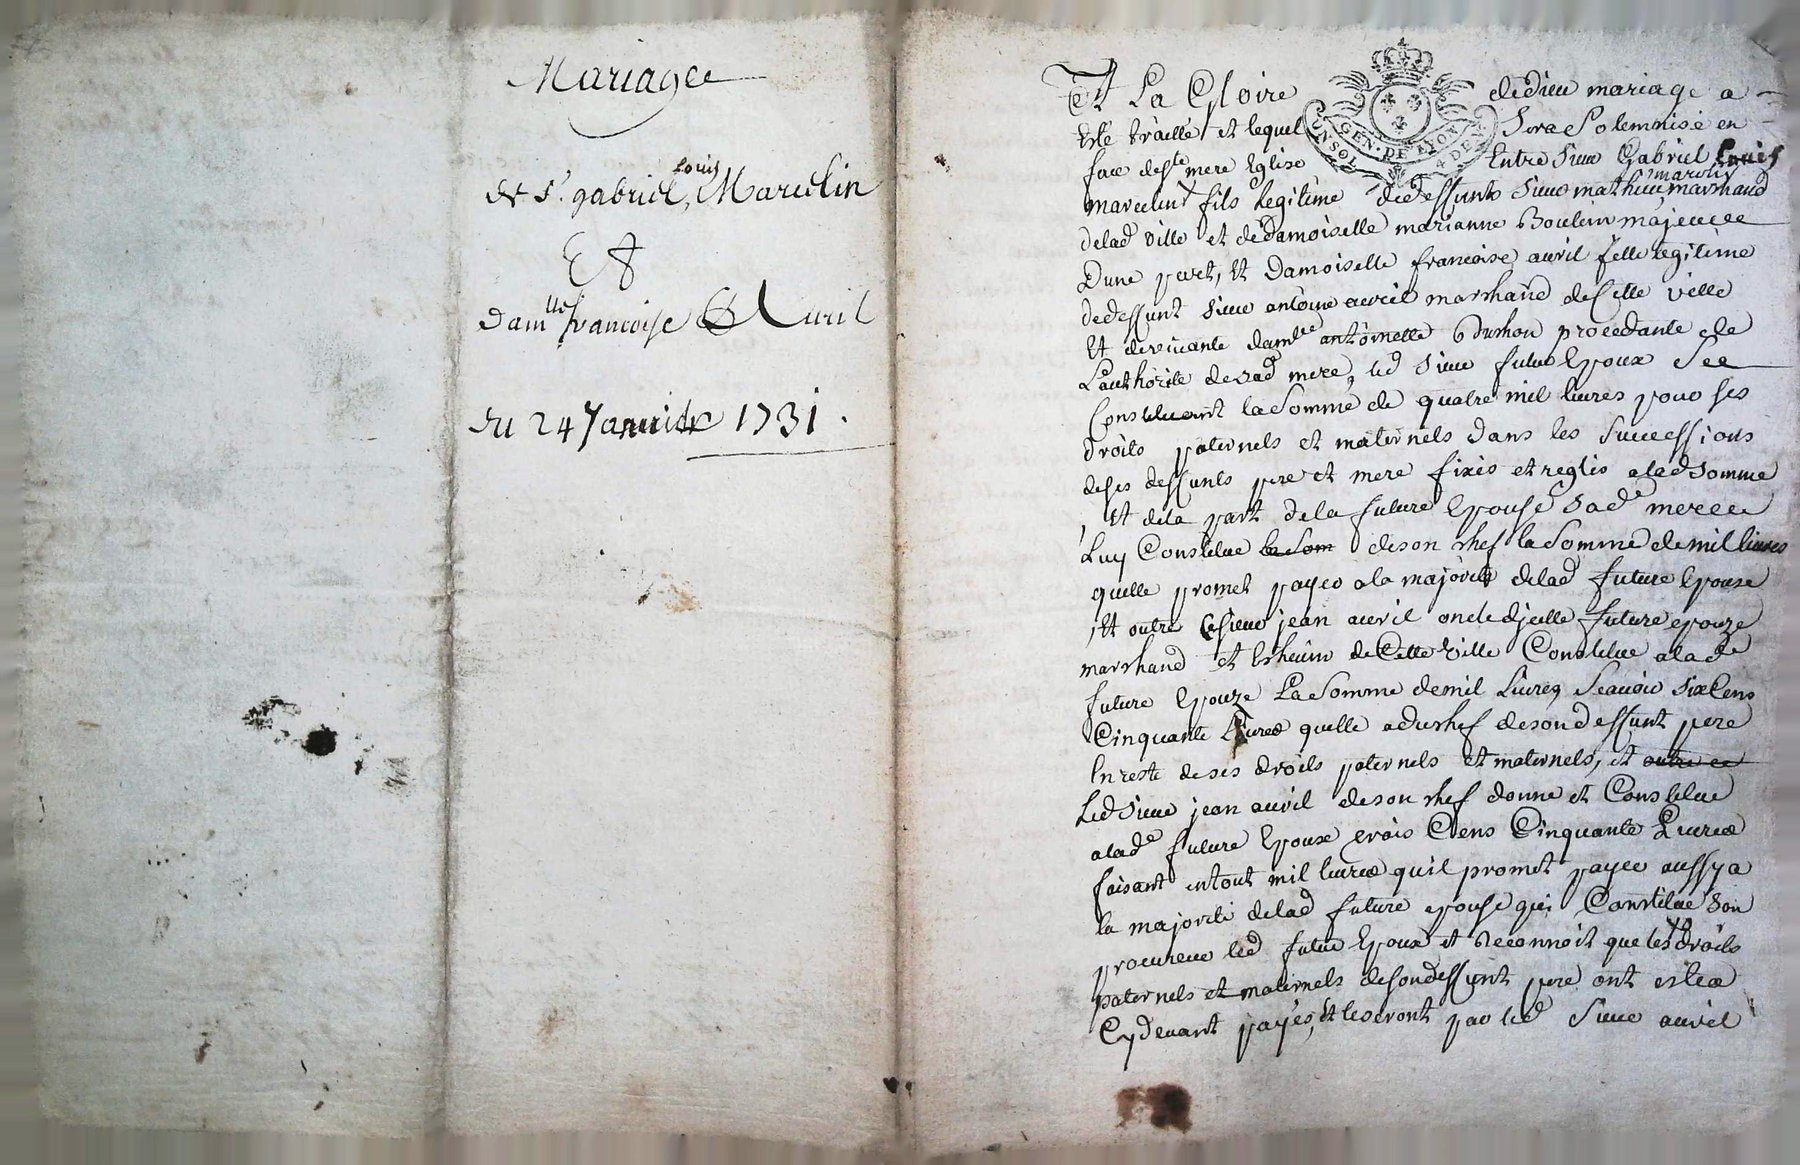 Mariage
de Sr. gabriel, louis Marcelin
Et
damlle francoise Avril
du 24 Janvier 1731.
Et La Gloire de dieu mariage a
esté traitté et lequel Sera Solemnisé en
face de ste mere Eglise Entre Sieur Gabriel Louis
marcelin fils legitime de deffunts Sieur mathieu marcelin marchand
de lad ville et de damoiselle marianne Boulein majeure
Dune part, Et damoiselle francoise auril fille legitime
de deffunt Sieur antoine auril marchand de Cette ville
Et de vivante damlle antoinette Duchon procedante de
L'authorité de sad mere, led Sieur futur Epoux Se
Constituant la Somme de quatre mil livres pour ses
droits paternels et maternels dans les Successions
de ses deffunts pere et mere fixés et reglés a lad Somme
, Et de la part de la future Epouse Sade mere
Luy Constitue la Som de son chef la Somme de mil livres
quelle promet payer a la majorité de lad future Epouse
, Et outre ce Sieur jean auril oncle d jcelle future epouze
marchand et Eschevin de Cette ville Constitue a lade
future Epouze La Somme de mil Livres, Scauoir Six Cens
Cinquante Livres quelle a du chef de son deffunt pere
En reste de ses droits paternels et maternels, et outre ce
Led Sieur jean auril de son chef donne et Constitue
a lade future Epouse trois Cens Cinquante Livres
faisant en tout mil livres qu'il promet payer aussy a
la majorité de lad future epouse qui Constitue Son
procureur led futur Epoux et Reconnoit que les droits
paternels et maternels de son deffunt pere ont esté
Cydeuant payés, Et le seront par led Sieur auril
GEN. DE LYON